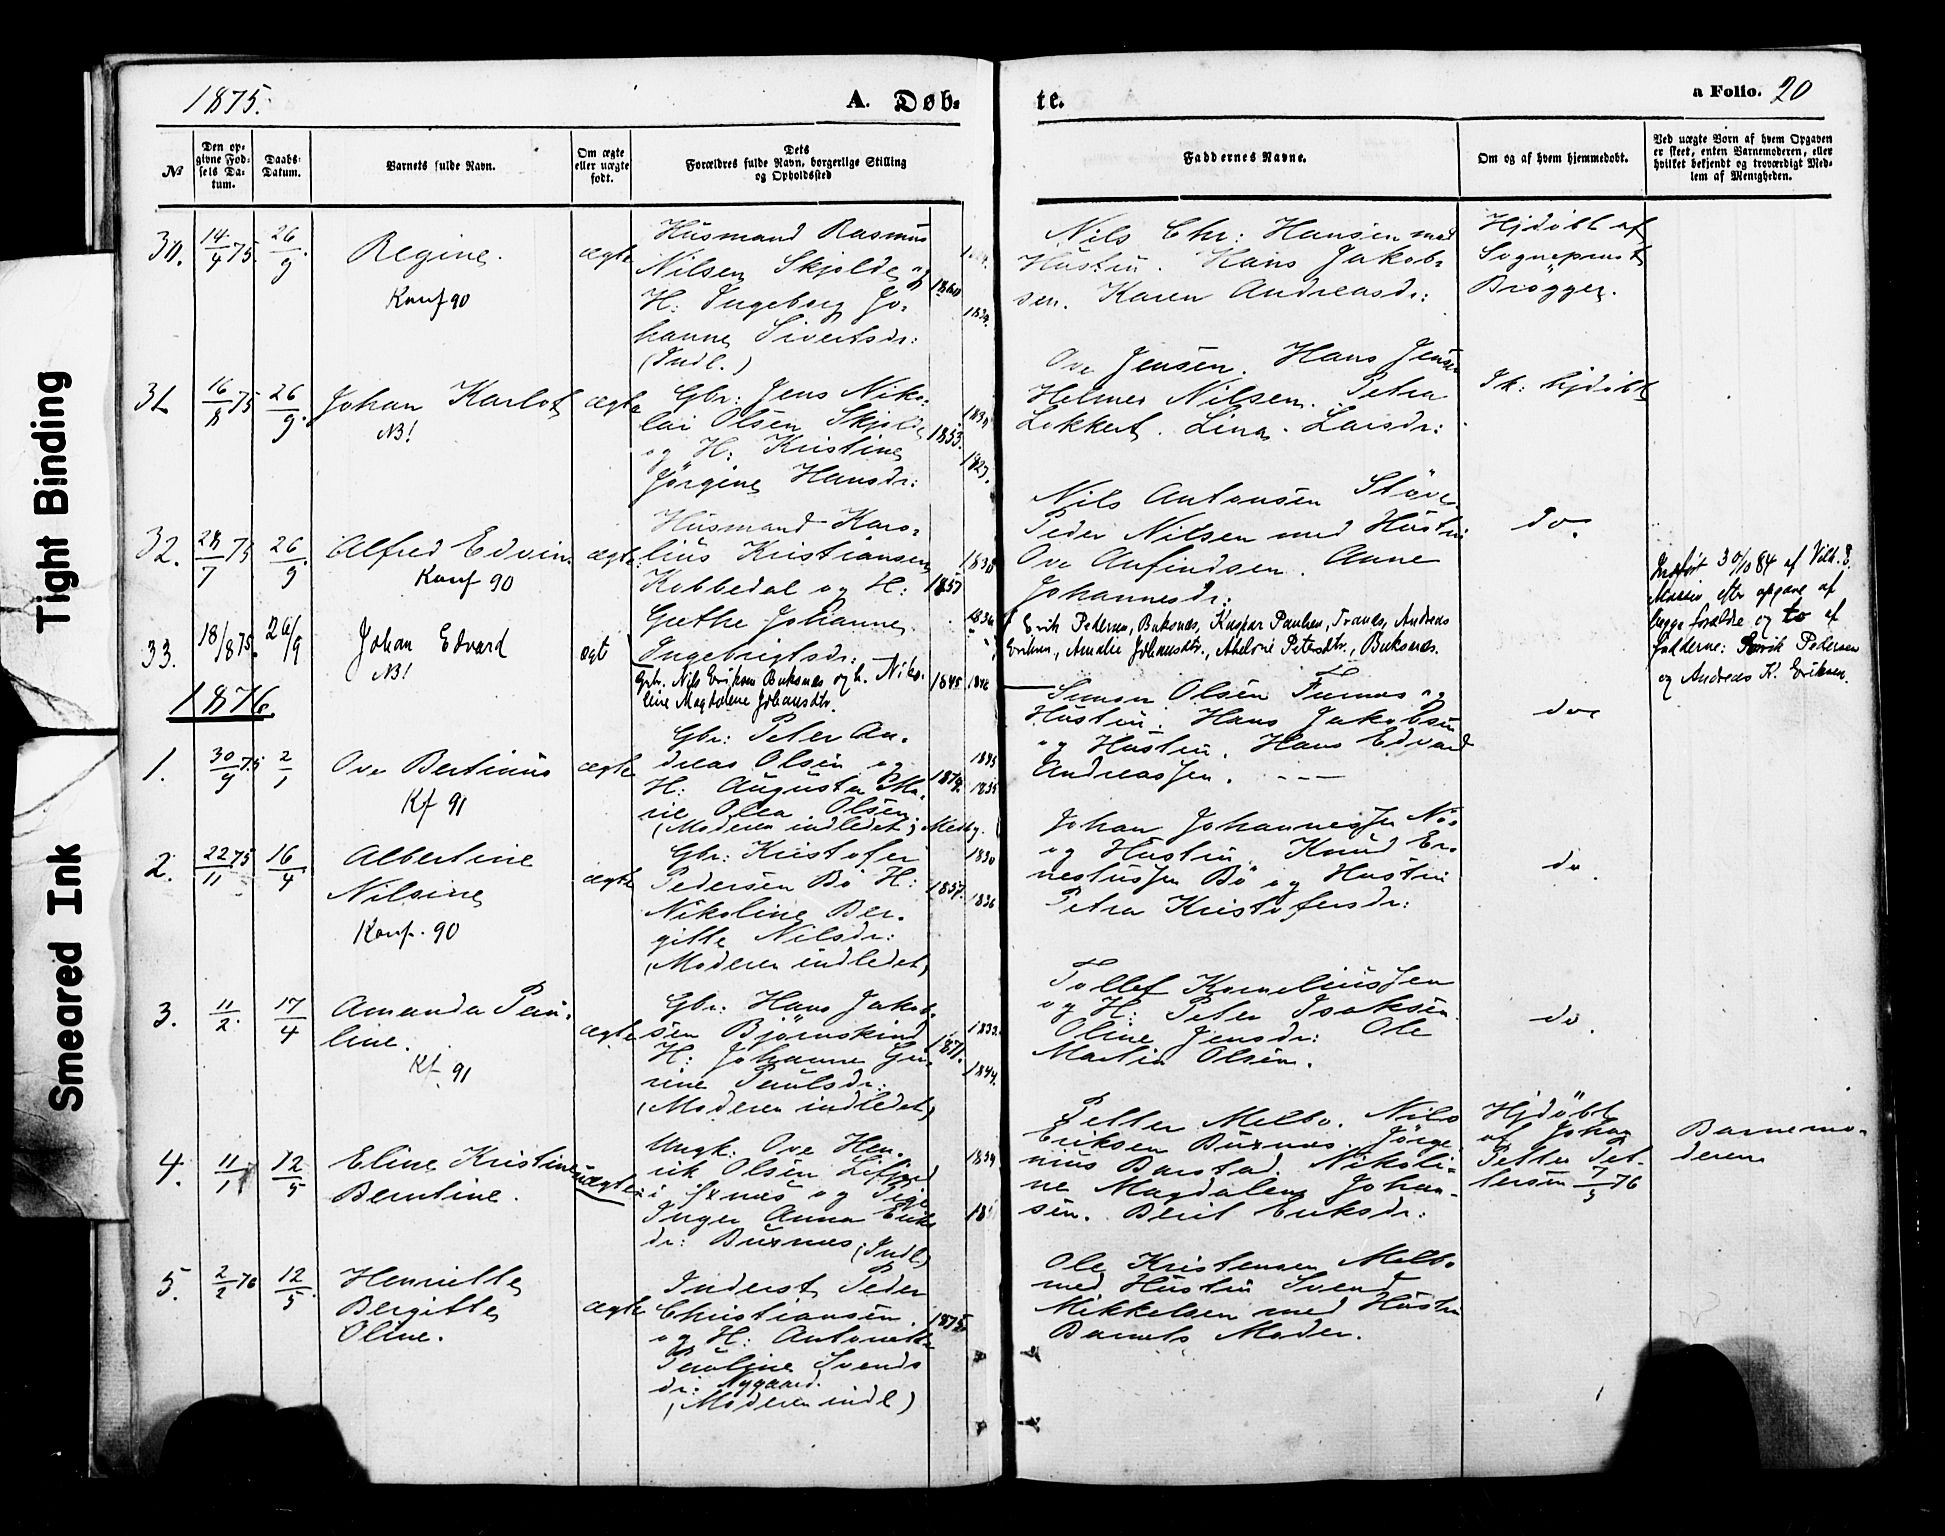 Tight Binding
Smeared Ink
1875.
A. Døb-
te.
a Folio. 20
No
Den op-
givne Fød-
sels Da-
tum.
Daabs-
Datum.
Barnets fulde Navn.
Om ægte
eller uægte
født.
Dets
Forældres fulde Navn, borgerlige Stilling
og Opholdssted
Faddernes Navne.
Om og af hvem hjemmedøbt.
Ved uægte Børn af hvem Opgaven
er skeet, enten Barnemoderen, eller
hvilket bekjendt og troværdigt Med-
lem af Menigheden.
30.
14/4 75.
26/9.
Regine.
Konf 90
ægte
Husmand Rasmus
Nilsen Skjolde og
H: Ingeborg Jo-
hanne Sivertsdr:
(Indl.)
1860
1834.
Nils Chr: Hansen med
Hustru. Hans Jakob-
sen. Karen Andreasdr:
Hjdöbt af
Sogneprest
Brögger.
31
16/8 75
26/9.
Johan Karlot
NB!
ægte
Gbr: Jens Niko-
lai Olsen Skjolde
og H: Kristine
Jörgine Hansdr:
1853.
1827.
Ove Jensen. Hans Jensen
Helmer Nilsen. Petra
Lekkert. Lina Larsdr:
Ik: hjdöbt
32.
28/7 75
26/9.
Alfred Edvin
Konf 90
ægte
Husmand Karo-
lius Kristiansen
Kobbedal og H:
Grethe Johanne
Ingebrigtsdr:
1838
1857
1836
Nils Antonsen Stöve
Peder Nilsen med Hustru
Ove Anfindsen. Anne
Johannesdr:
do.
33.
18/8 75.
26/9
Johan Edvard
NB!
ægt
Gbr. Nils Eriksen Buksnæs og h. Niko-
line Magdalene Johansdtr.
1845
1846
Erik Pedersen, Buksnæs, Kaspar Paulsen, Tranes, Andreas
Eriksen, Amalie Johansdtr., Abelone Petersdtr., Buksnæs.
Indført 30/10 84 af Vilh. P.
efter opgave af
begge forældre og to af
fadderne: Erik Pedersen
og Andreas K. Eriksen.
1876.
1.
30/9 75
2/1
Ove Bertinius
Kf 91
ægte
Gbr: Peter An-
dreas Olsen og
H: Augusta Ma-
rie Olea Olsen
(Moderen indledet; Melby.
1845
1874.
1835
Simon Olsen Furnes og
Hustru. Hans Jakobsen
og Hustru. Hans Edvard
Andreassen. ——
do
2.
22/11 75
16/4
Albertine
Nilsine
Konf. 90
ægte
Gbr: Kristofer
Pedersen Bö H:
Nikoline Ber-
gitte Nilsdr:
(Moderen indledet)
1830
1857.
1836
Johan Johannessen
og Hustru. Knud Er-
nestussen Bö og Hustru
Petra Kristofersdr:
do.
3.
11/2.
17/4
Amanda Pau-
line.
Kf 91
ægte
Gbr: Hans Jakob-
sen Björnskind
H: Johanne Gu-
rine Paulsdr:
(Moderen indledet)
1832.
1871.
1844.
Tollef Korneliussen
og H: Peter Isaksen.
Oline Jensdr: Ole
Martin Olsen.
do.
4.
11/1
12/5
Eline Kristine
Berntine.
uægte
Ungk: Ove Hen-
rik Olsen Lifjord
i Öxnæs og Pige
Inger Anna Eriks
dr: Buxnæs (Indl)
1839
Petter Melbo. Nils
Eriksen Buxnæs. Jörge-
nius Barstad. Nikoli-
ne Magdalene Johan-
sen. Berit Eriksdr:
Hjdöbt
af Johan
Petter Pet-
tersen 7/5 76
Barnemo-
deren
5.
2/2 76
12/5.
Henriette
Bergitte
Oline.
ægte
Inderst Peder
Christiansen.
og H: Antonette
Pauline Svends
dr: Nygaard.
(Moderen indl)
1875
Ole Kristensen Melbo
med Hustru Svend
Mikkelsen med Hustru
Barnets Moder.